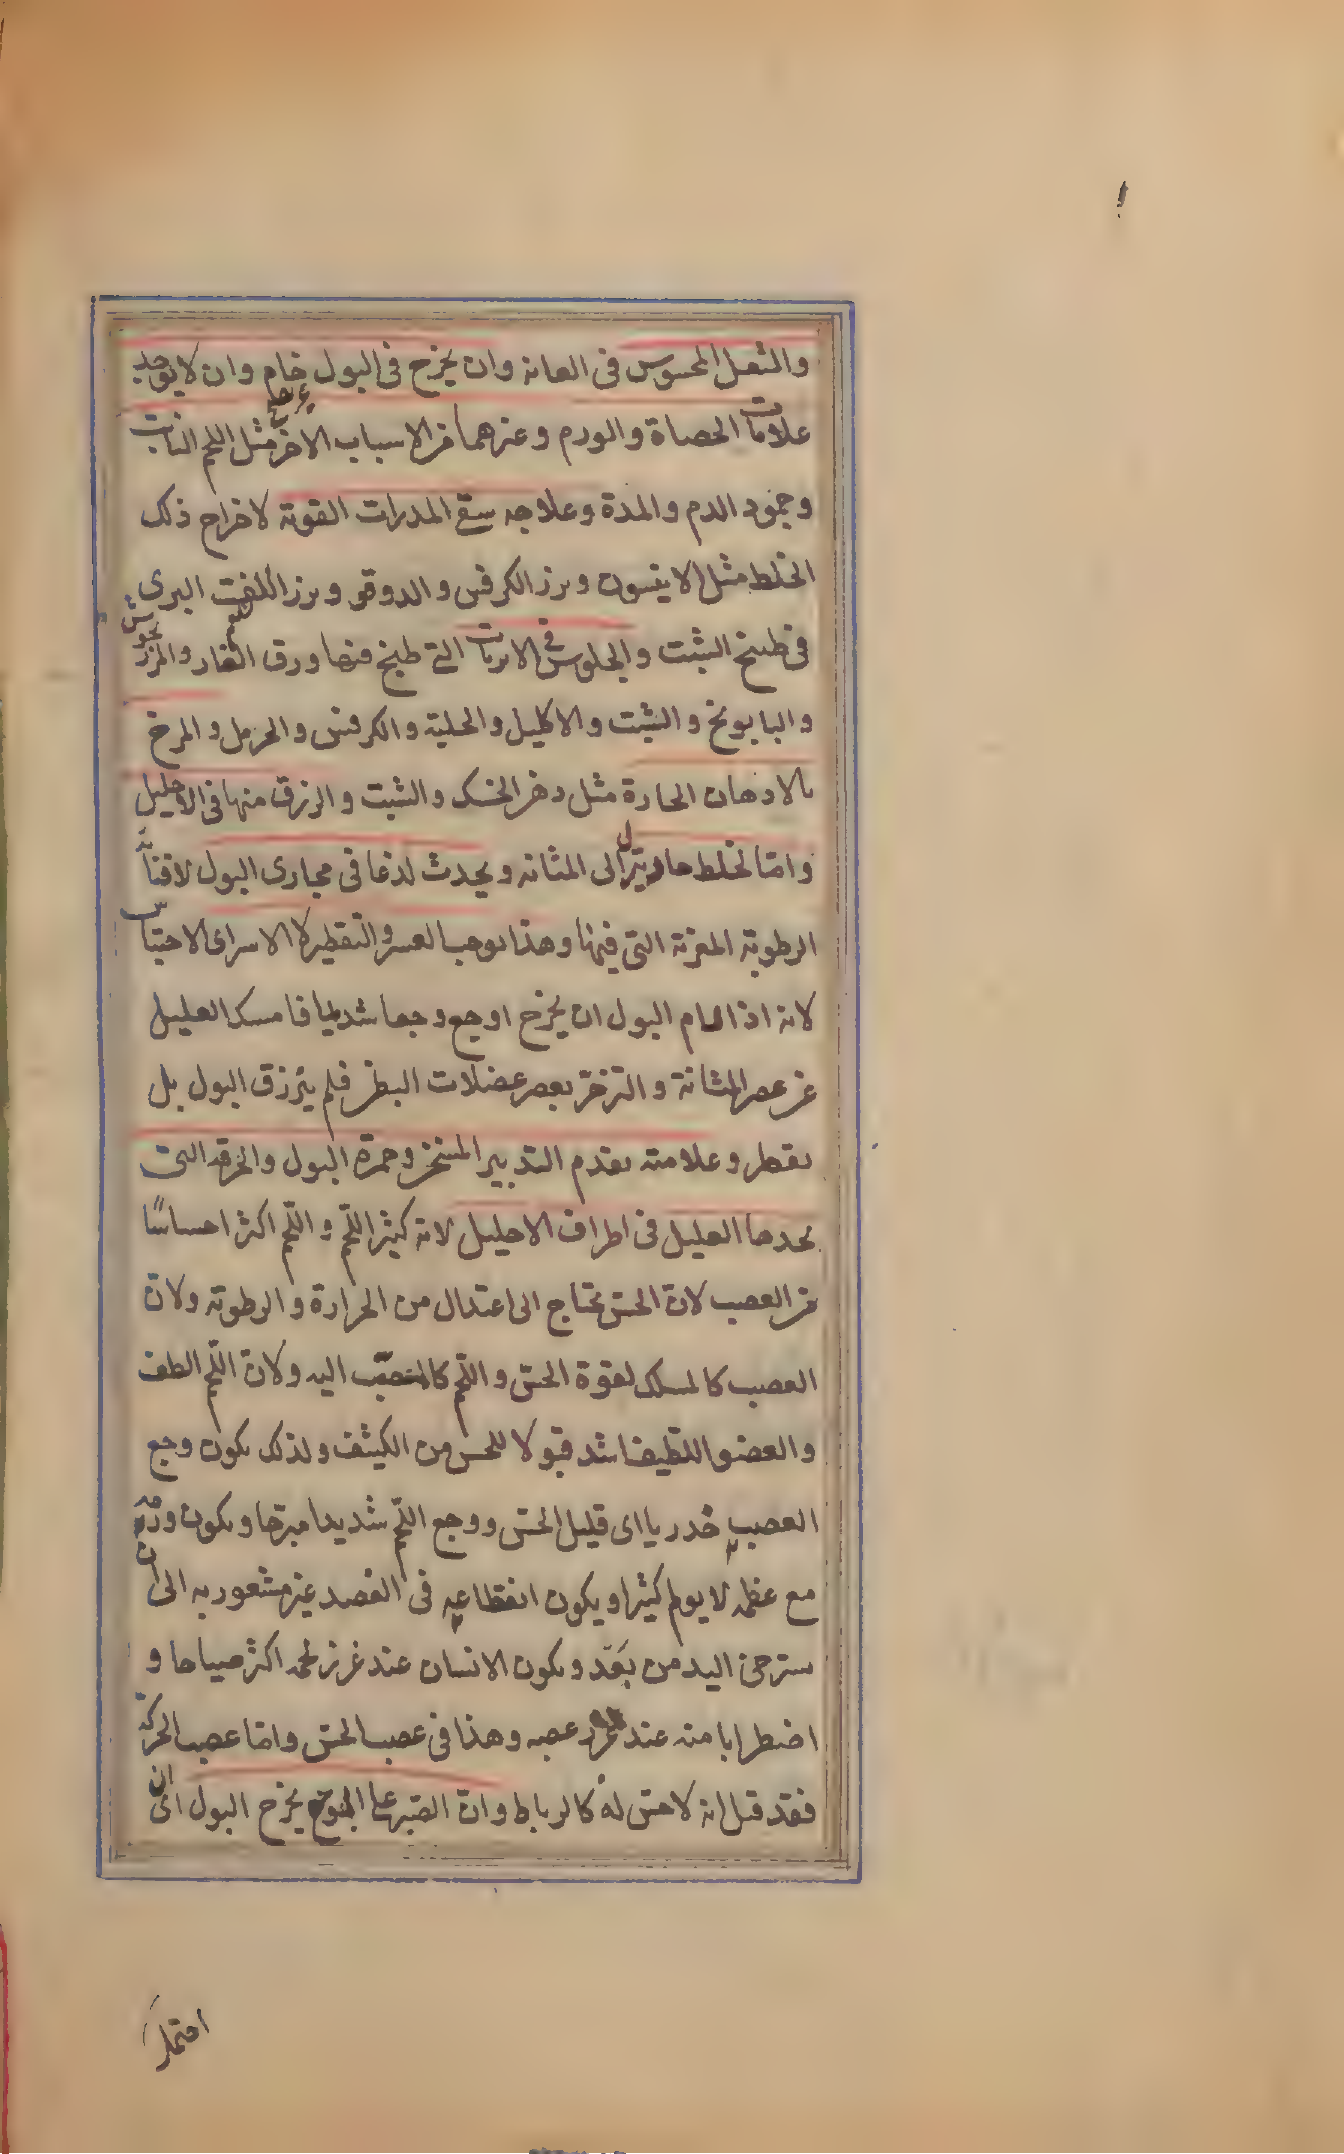 والثقل المحسوس فى العانة وان يخرج فى البول خام وان لا يوجد
علامات الحصاة والورم وغيرهما من الاسباب الاخر مثل اللحم النابت
وجمود الدم والمدة وعلاجه سقى المدرات القوية لاخراج ذلك
الخلط مثل الانيسون وبزر الكرفس والدوقو وبزر اللفت البرى
فى طبيخ الشبت والجلوس فى الابزنات التى طبخ فيها ورق الغار والمرزنجوش
والبابونج والشبت والاكليل والحلبة والكرفس والحرمل والمرخ
بالادهان الحارة مثل دهن الخسك والشبت والزرق منها فى الاحليل
واما لخلط حاد ينزل الى المثانة ويحدث لذعا فى مجارى البول لافنائه
الرطوبة المغرية التى فيها وهذا يوجب العسر والتقطير لا الاسر اى الاحتباس
لانه اذا رام البول ان يخرج اوجع وجعا شديدا فامسك العليل
عن عصر المثانة والتزحر بعصر عضلات البطن فلم ينزرق البول بل
يقطر وعلامته تقدم التدبير المسخن وحمرة البول والحرقة التى
يجدها العليل فى اطراف الاحليل لانه كثير اللحم و اللحم اكثر احساسًا
من العصب لان الحس يحتاج الى اعتدال من الحرارة والرطوبة ولان
العصب كالمسلك لقوة الحس و اللحم كالمنصب اليه ولان اللحم الطف
والعضو اللطيف اشد قبولا للحس من الكثيف ولذلك يكون وجع
العصب خدريا اى قليل الحس ووجع اللحم شديدا مبرحا ويكون ورمه
مع عظمه لا يولم كثيرا ويكون انقطاعه فى الفصد غير مشعور به الى ان
يسترخى اليد من بعد ويكون الانسان عند غرز لحمه اكثر صياحا و
اضطرابا منه عند غرز عصبه وهذا فى عصب الحس واما عصب الحركة
فقد قيل انه لا حس له كالرباط وان الصبر على الوجع يخرج البول ان